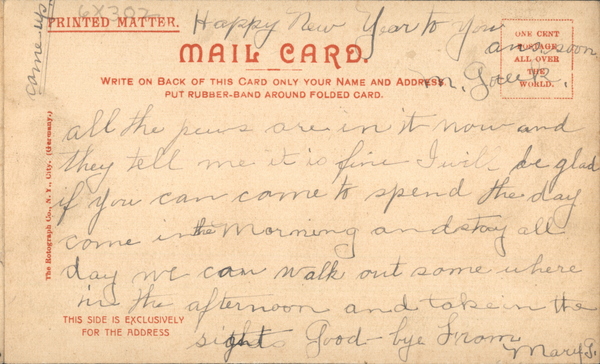 came up
6X302
PRINTED MATTER.
Happy New Year to you
ans. soon
M.
MAIL CARD.
ONE CENT
POSTAGE
ALL OVER
THE
WORLD.
WRITE ON BACK OF THIS CARD ONLY YOUR NAME AND ADDRESS
PUT RUBBER-BAND AROUND FOLDED CARD.
all the pews are in it now and
they tell me it is fine I will be glad
if you can come to spend the day
come in the Morning and stay all
day we can walk out some where
in the afternoon and take in the
sights Good-bye From
Mary G.
The Rotograph Co., N. Y., City. (Germany.)
THIS SIDE IS EXCLUSIVELY
FOR THE ADDRESS